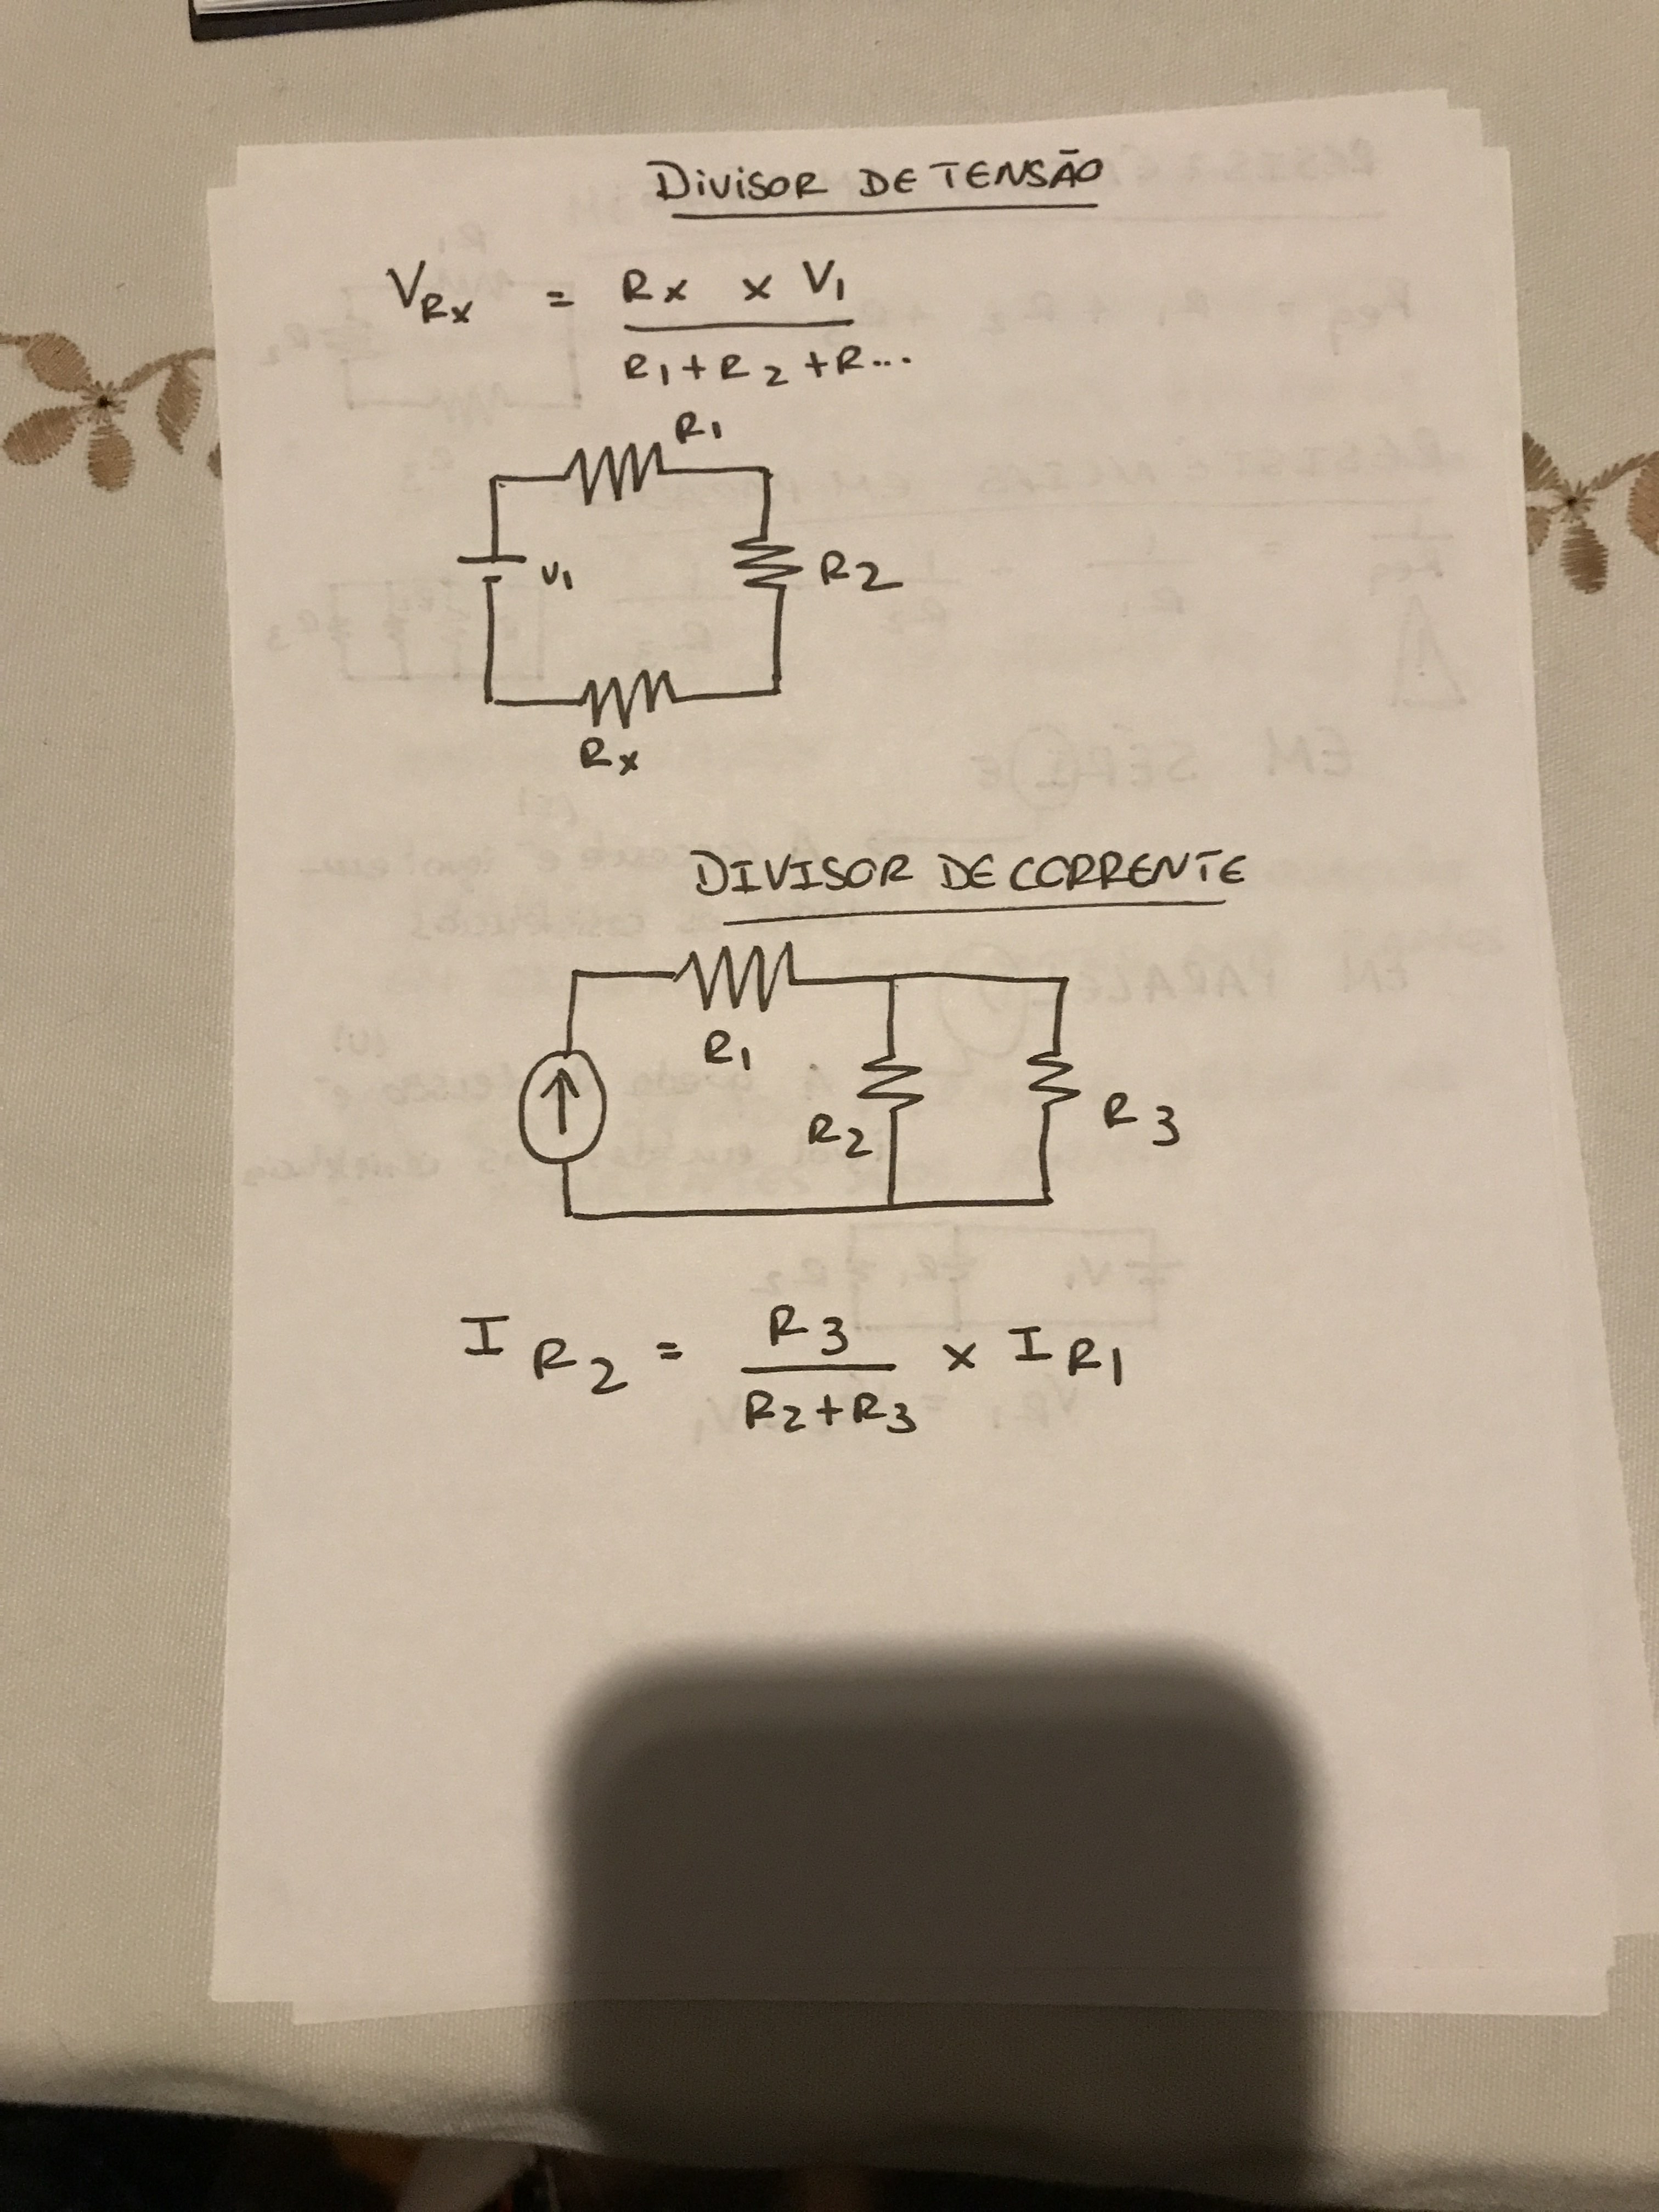 DIVISOR DE TENSÃO
VRx = Rx x V1
R1+R2+R...
R1
V1
R2
Rx
DIVISOR DE CORRENTE
R1
R2
R3
IR2 = R3 x IR1
R2+R3